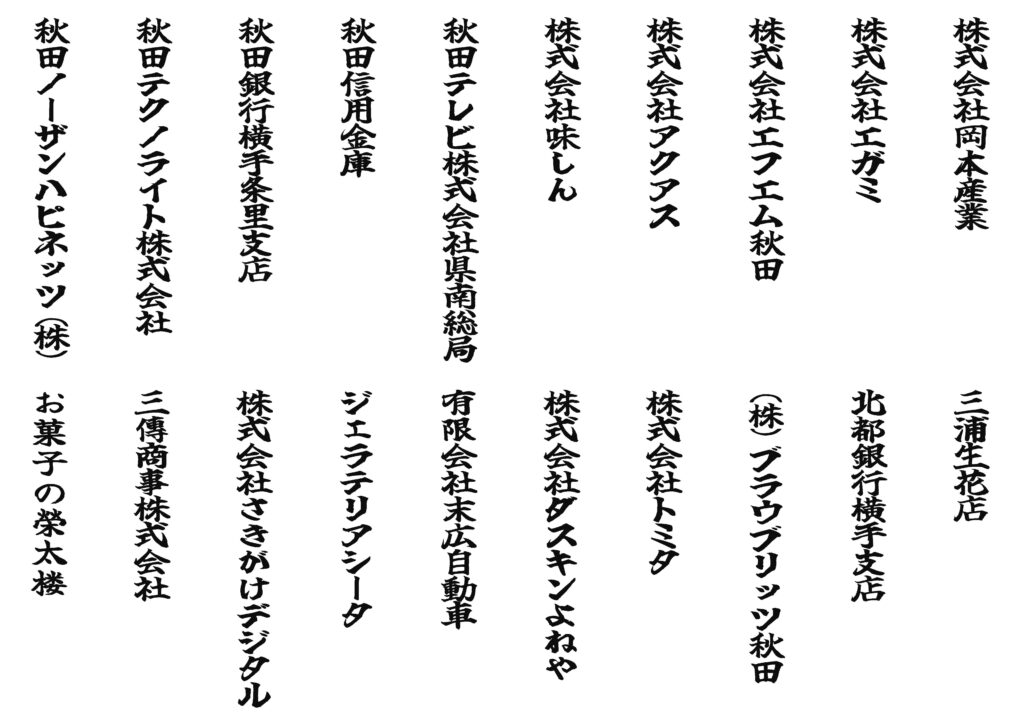 株式会社岡本産業
株式会社エガミ
株式会社エフエム秋田
株式会社アクアス
株式会社味しん
秋田テレビ株式会社県南総局
秋田信用金庫
秋田銀行横手条里支店
秋田テクノライト株式会社
秋田ノーザンハピネッツ(株)
三浦生花店
北都銀行横手支店
(株)ブラウブリッツ秋田
株式会社トミタ
株式会社ダスキンよねや
有限会社末広自動車
ジェラテリアシータ
株式会社さきがけデジタル
三傳商事株式会社
お菓子の榮太楼